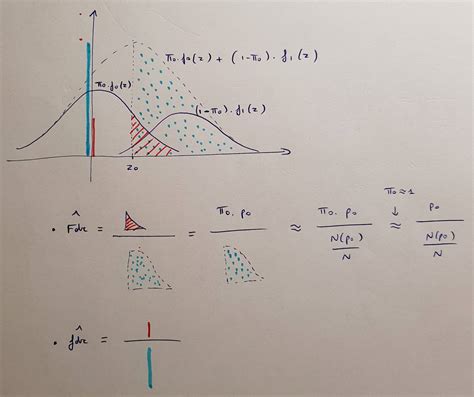 π₀·f₀(z) + (1-π₀)·f₁(z)
π₀·f₀(z)
(1-π₀)·f₁(z)
z₀
π₀≈1
• F̂dr = — = π₀·p₀ / — ≈ π₀·p₀ / (N(p₀)/N) ≈ ↓ p₀ / (N(p₀)/N)
• f̂dr = —